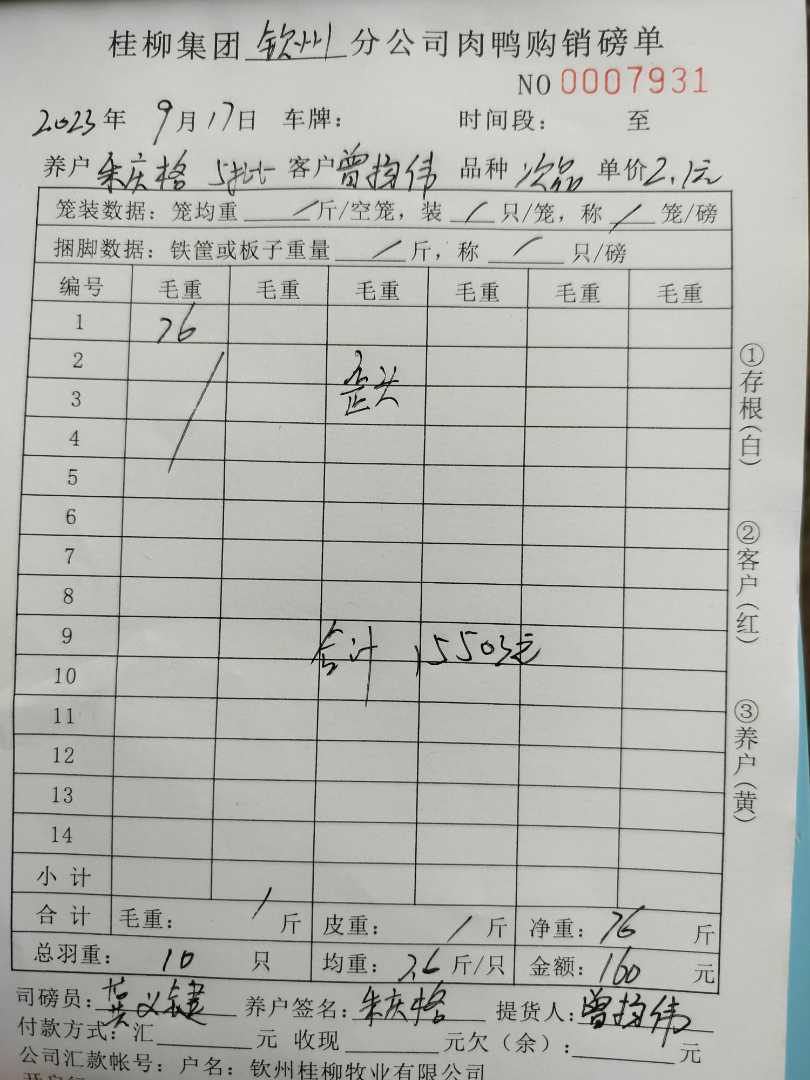 桂柳集团钦州分公司肉鸭购销磅单
NO 0007931
2023年9月17日 车牌: 时间段: 至
养户 朱庆格 5批 客户 曾伟 品种 次品 单价 2.1元
笼装数据: 笼均重 / 斤/空笼, 装 / 只/笼, 称 / 笼/磅
捆脚数据: 铁筐或板子重量 / 斤, 称 / 只/磅
编号 毛重 毛重 毛重 毛重 毛重 毛重
1 76
2
歪头
3
4
5
6
7
8
9
合计 15503元
10
11
12
13
14
小计
合计 毛重: / 斤 皮重: / 斤 净重: 76 斤
总羽重: 10 只 均重: 7.6 斤/只 金额: 160 元
司磅员: 莫义键 养户签名: 朱庆格 提货人: 曾伟
付款方式: 汇 元 收现 元欠(余): 元
公司汇款帐号: 户名: 钦州桂柳牧业有限公司
①存根(白)
②客户(红)
③养户(黄)